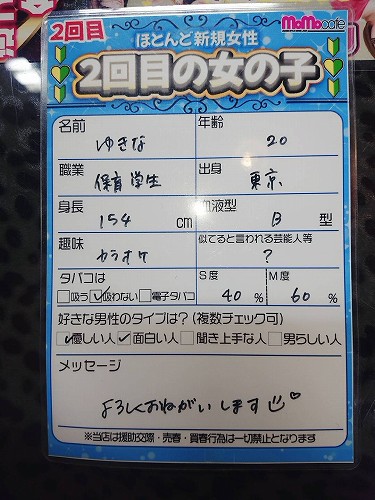 2回目
MoMocafe
ほとんど新規女性
2回目の女の子
名前 ゆきな
年齢 20
職業 保育学生
出身 東京
身長 154 cm
血液型 B 型
趣味 カラオケ
似てると言われる芸能人等 ?
タバコは
吸う 吸わない 電子タバコ
S度 40 %
M度 60 %
好きな男性のタイプは?(複数チェック可)
優しい人 面白い人 聞き上手な人 男らしい人
メッセージ
よろしくおねがいします
※当店は援助交際・売春・買春行為は一切禁止となります